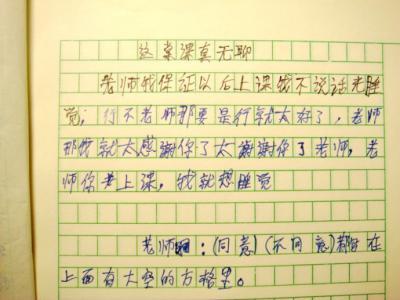 这堂课真无聊
老师我保证以后上课我不说话光睡
觉，行不老师那要是行就太好了，老师
那我就太感谢你了太谢谢你了老师，老
师你一上课，我就想睡觉
老师：(同意)(不同意)都在
上面有大空的方格里。